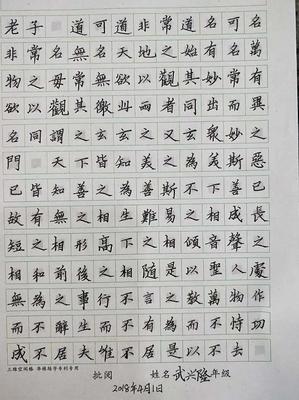 老子 道可道非常道名可名
非常名無名天地之始有名萬
物之母常無欲以觀其妙常有
欲以觀其徼此兩者同出而異
名同謂之玄玄之又玄衆妙之
門 天下皆知美之為美斯惡
已皆知善之為善斯不下善已
故有無之相生難易之相成長
短之相形高下之相傾音聲之
相和前後之相隨是以聖人處
無為之事行不言之教萬物作
而不辭生而不有為而不恃功
成不居夫惟不居是以不去
三維空間格 華楷練字專利專用
批阅 姓名 武兴隆 年级
2018年4月1日